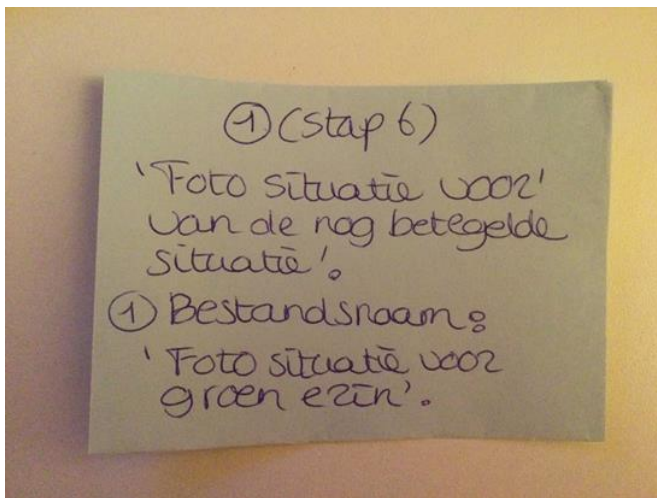 ① (stap 6)
'Foto situatie voor'
van de nog betegelde
situatie'.
① Bestandsnaam:
'Foto situatie voor
groen erin'.